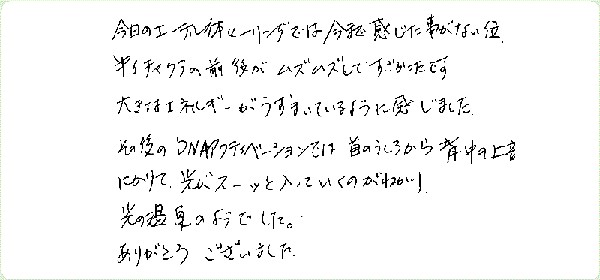 今日のエーテル体ヒーリングでは今まで感じた事がない位
第1チャクラの前後がムズムズしてすごかったです
大きなエネルギーがうずまいているように感じました。
その後のDNAアクティベーションでは首のうしろから背中の上部
にかけて、光がスーッと入っていくのがわかり
光の温泉のようでした。
ありがとうございました。